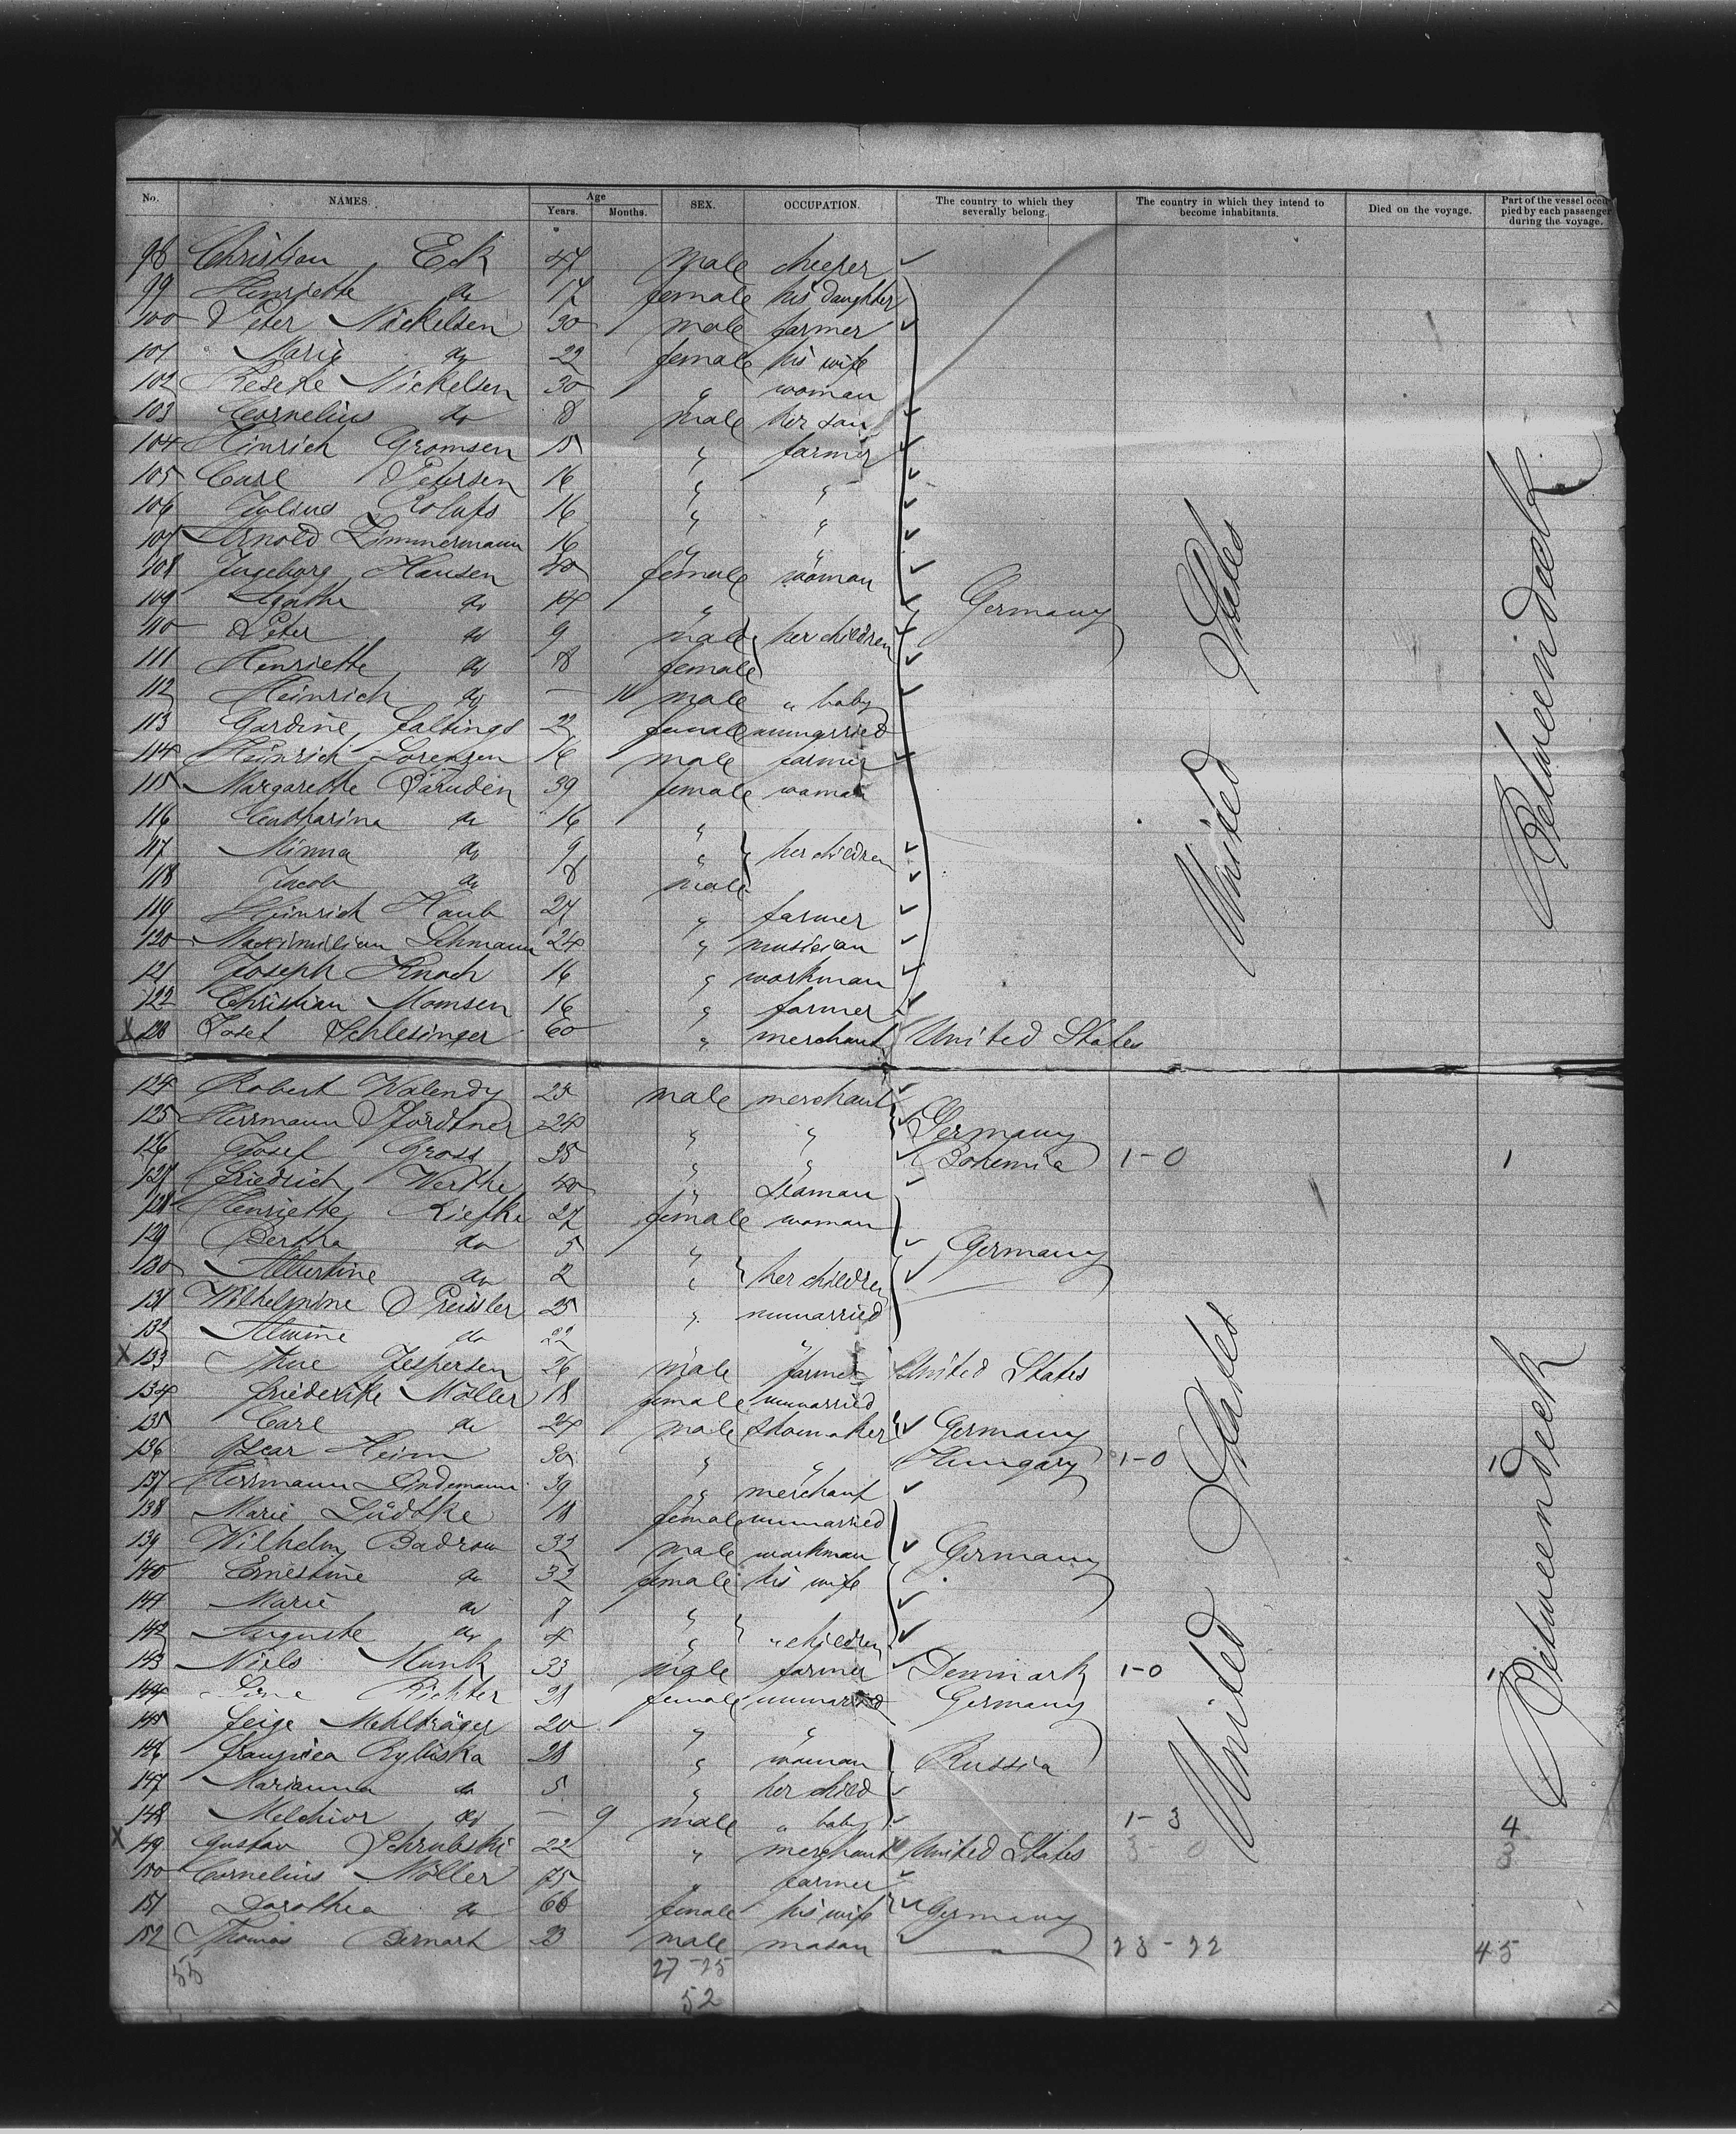 No. NAMES. Age Years. Months. SEX. OCCUPATION. The country to which they severally belong. The country in which they intend to become inhabitants. Died on the voyage. Part of the vessel occupied by each passenger during the voyage.
98 Christian Eck 47 male
99 Henriette do 17 female his daughter
100 Peter Nickelsen 30 male farmer
101 Marie do 22 female his wife
102 Nickelsen 30 " woman
103 Cornelius do 8 male her son
104 Hinrich Gromsen 15 " farmer
105 Carl Petersen 16 " "
106 Julius Rolufs 16 " "
107 Arnold Zimmermann 16 " "
108 Ingeborg Hansen 40 female woman
109 Agathe do 14 " Germany
110 Peter do 9 male her children
111 Henriette do 8 female
112 Heinrich do — 10 male " baby
113 Gardine Faltings 22 female unmarried
114 Heinrich Lorenzen 16 male farmer
115 Margarethe 39 female woman
116 Catharina do 16 "
117 Minna do 9 " her children
118 Jacob do 8 male
119 Heinrich Haub 27 " farmer
120 Maximilian Lehmann 24 " musician
121 Joseph Knoch 16 " workman
122 Christian Momsen 16 " farmer
X 123 Josef Schlesinger 60 " merchant United States
United States
Betweendeck
124 Robert Walendy 25 male merchant
125 Herrmann Pfördtner 24 " " Germany
126 Josef Gross 35 " " Bohemia 1-0 1
127 Friedrich Werthe 40 " seaman
128 Henriette Kiefke 27 female woman
129 Bertha do 5 " Germany
130 Albertine do 2 " her children
131 Wilhelmine Preissler 25 " unmarried
132 Alwine do 22
X 133 Thue Jespersen 26 male farmer United States
134 Friederike Möller 18 female unmarried
135 Carl do 24 male shomaker Germany
136 Oscar Heim 30 " " Hungary 1-0 1
137 Herrmann Lindemann 39 " merchant
138 Marie Lüdtke 18 female unmarried
139 Wilhelm Badrow 32 male workman Germany
140 Ernestine do 32 female his wife
141 Marie do 7 "
142 Auguste do 4 " " children
143 Niels Munk 33 male farmer Denmark 1-0 1
144 Richter 21 female unmarried Germany
145 Feige Mehlträger 20 " "
146 Rybiska 28 " woman Russia
147 Marianna do 5 " her child
148 Melchior do — 9 male " baby 1-3 4
X 149 Gustav 22 " merchant United States 3 0 3
150 Cornelius Möller 75 " farmer
151 Dorothea do 66 female his wife Germany
152 Thomas Bernart 23 male mason 23-22 45
United States
Betweendeck
55 27-25
52